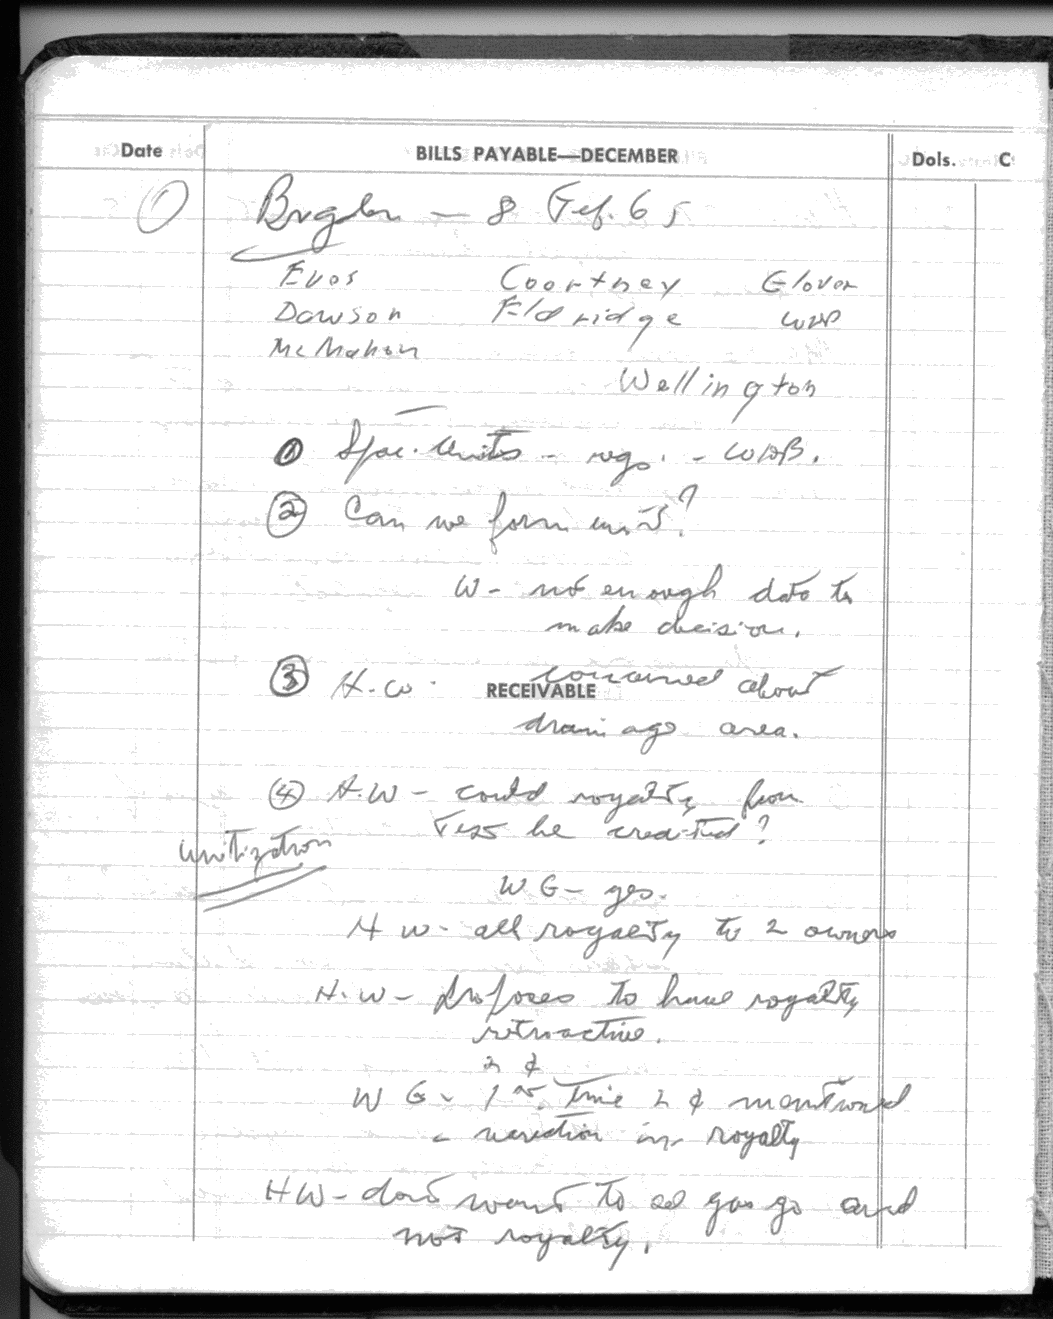 Date BILLS PAYABLE—DECEMBER Dols. C
1 Brigden — 8 Feb. 65
Evos Courtney Glover
Dawson Eldridge WDB
McMahon
Wellington
1 Spac. Units - regs. - WDB.
2 Can we form unit?
W - not enough data to
make decision.
3 H.W. concerned about
RECEIVABLE
drainage area.
4 H.W - could royalty from
Test be credited?
unitization
WG - yes.
HW - all royalty to 2 owners
H.W - proposes to have royalty
retroactive.
2 ¢
WG - 1st time 2 ¢ mentioned
royalty
HW - don't want to see gas go and
not royalty.